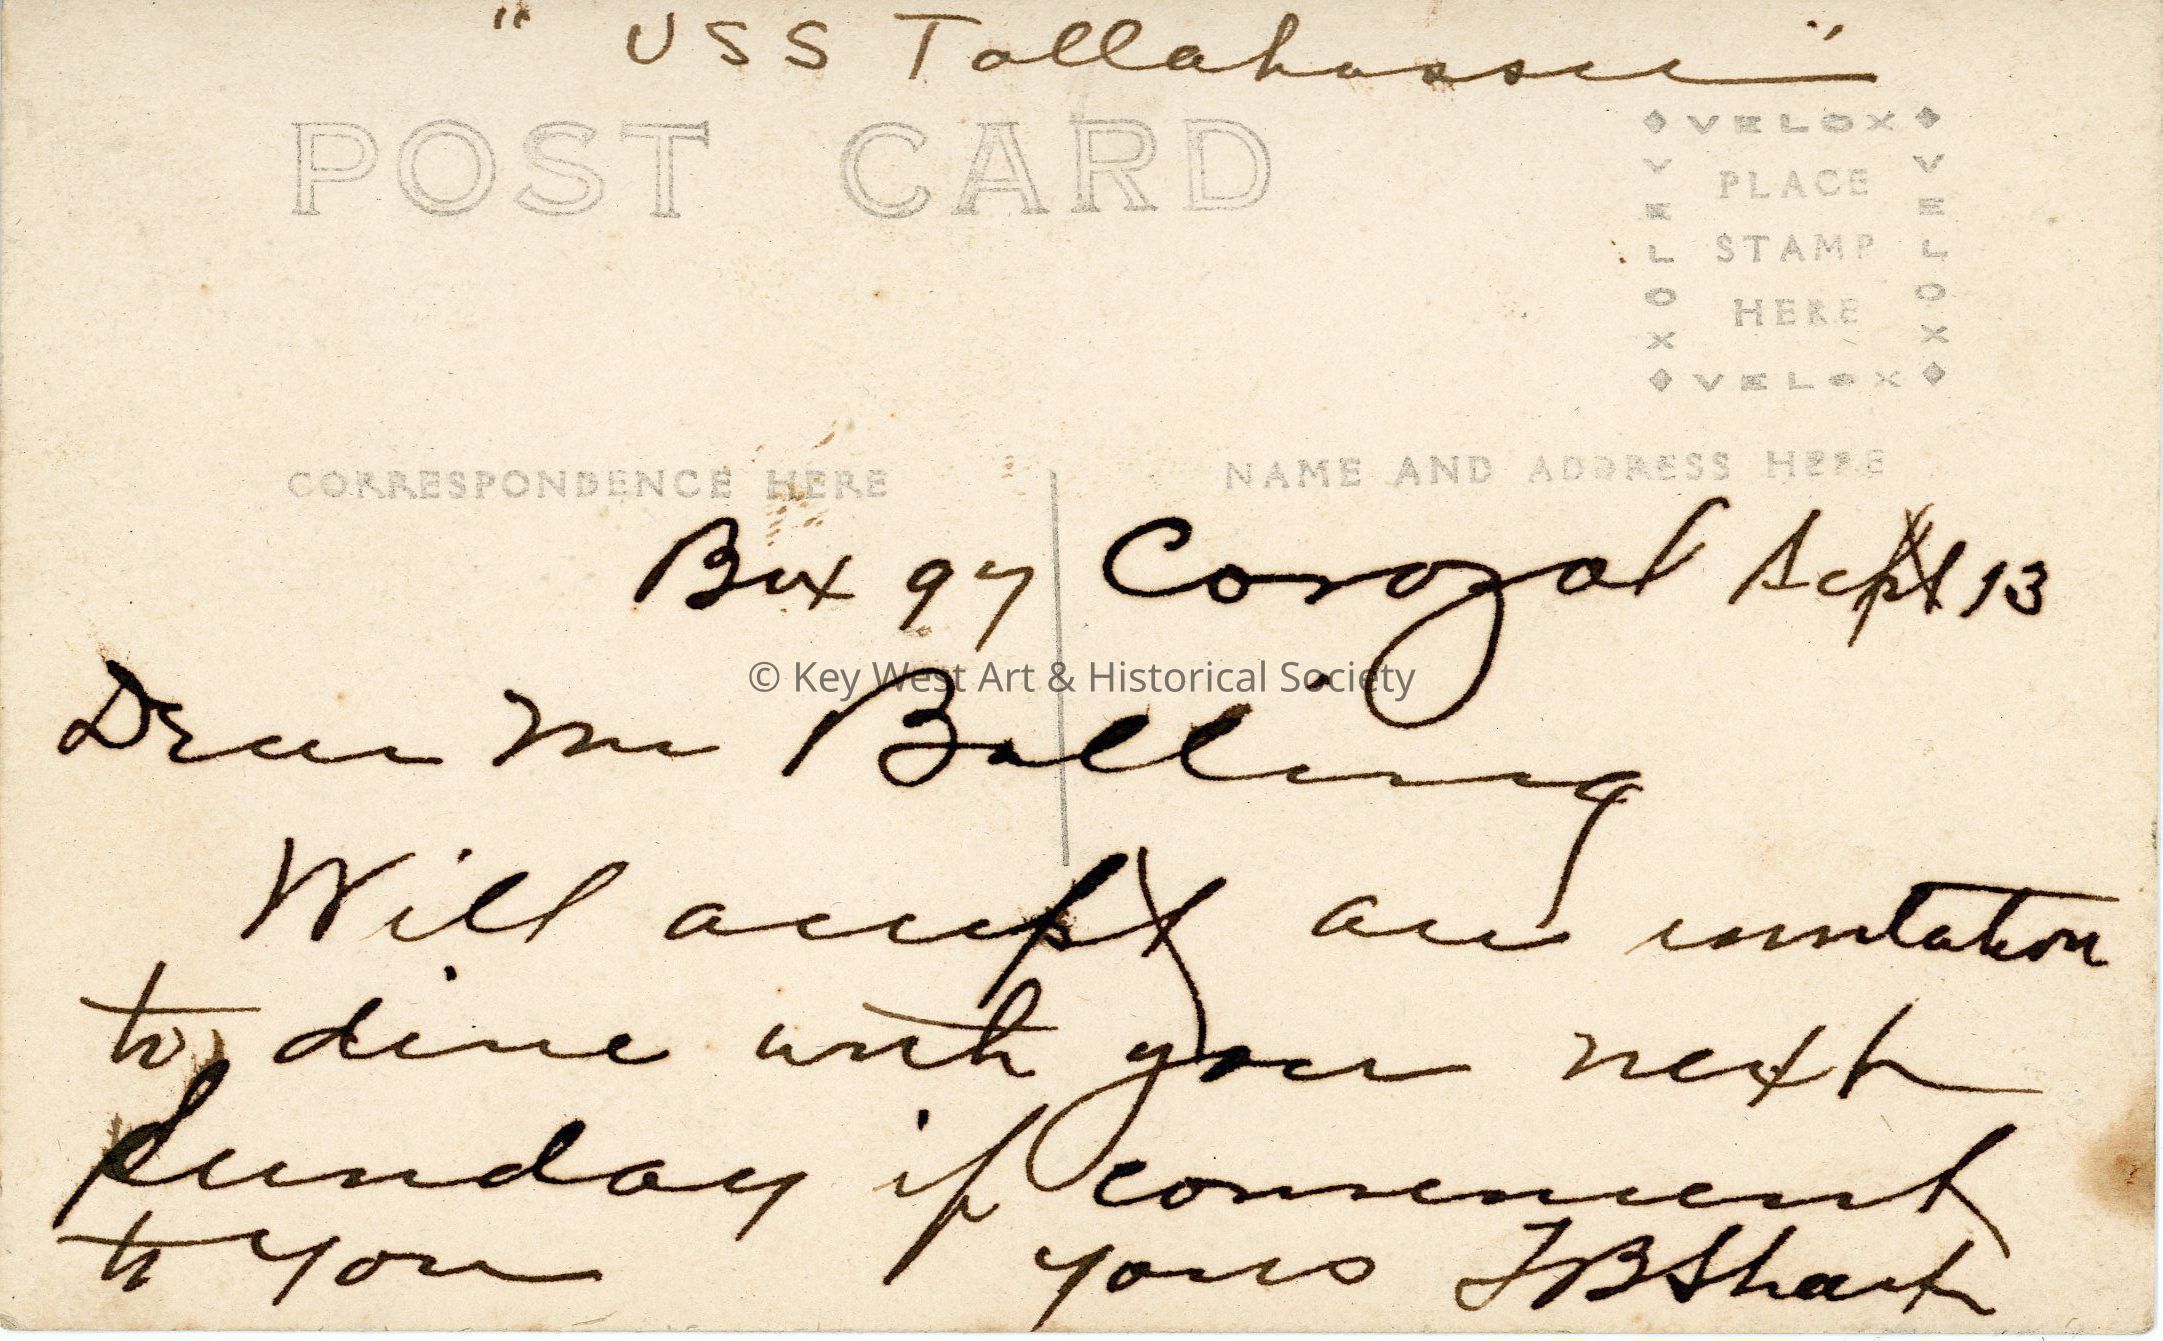 " USS Tallahassee "
POST CARD
VELOX
VELOX
VELOX
VELOX
PLACE
STAMP
HERE
CORRESPONDENCE HERE
NAME AND ADDRESS HERE
Box 97 Corozal Sept 13
© Key West Art & Historical Society
Dear Mr Balling
Will accept an invitation
to dine with you next
Sunday if convenient
to you yours